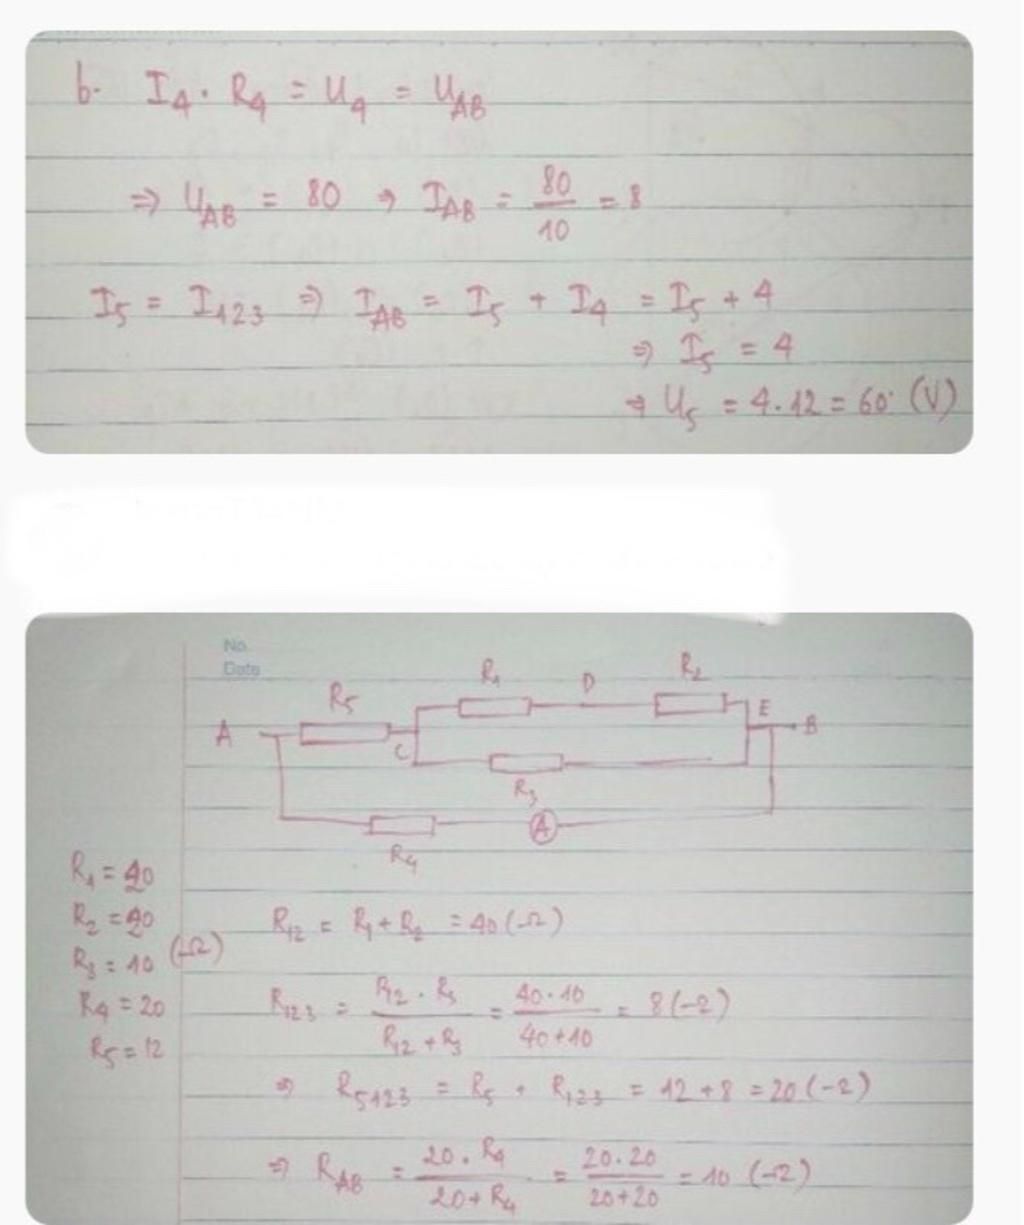 b. I₄ . R₄ = U₄ = U_AB
⇒ U_AB = 80 ⇒ I_AB = 80/10 = 8
I₅ = I₁₂₃ ⇒ I_AB = I₅ + I₄ = I₅ + 4
⇒ I₅ = 4
⇒ U₅ = 4.12 = 60 (V)
No.
Date
R₁ D R₂
R₅ E
A C B
R₃
A
R₄
R₁ = 20
R₂ = 20 R₁₂ = R₁ + R₂ = 40 (Ω)
R₃ = 10 (Ω)
R₄ = 20 R₁₂₃ = R₁₂ . R₃ / R₁₂ + R₃ = 40.10 / 40+10 = 8 (Ω)
R₅ = 12
⇒ R₅₁₂₃ = R₅ + R₁₂₃ = 12 + 8 = 20 (Ω)
⇒ R_AB = 20 . R₄ / 20 + R₄ = 20.20 / 20+20 = 10 (Ω)